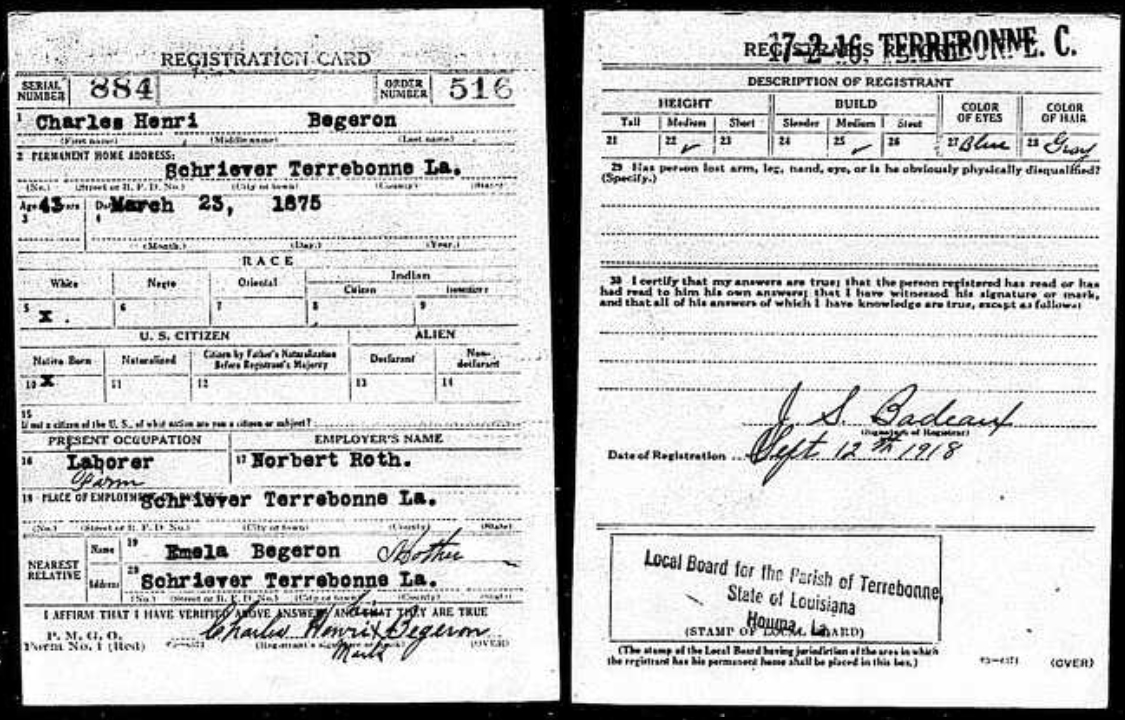 REGISTRATION CARD
SERIAL NUMBER 884 ORDER NUMBER 516
1 Charles Henri Begeron
(First name) (Middle name) (Last name)
2 PERMANENT HOME ADDRESS:
Schriever Terrebonne La.
(No.) (Street or R. F. D. No.) (City or town) (County) (State)
Age 43 Years March 23, 1875
3 4
(Month.) (Day.) (Year.)
RACE
White Negro Oriental Indian
Citizen
5 X . 6 7 8 9
U. S. CITIZEN ALIEN
Native Born Naturalized Citizen by Father's Naturalization Before Registrant's Majority Declarant Non-declarant
10 X 11 12 13 14
15
If not a citizen of the U. S., of what nation are you a citizen or subject?
PRESENT OCCUPATION EMPLOYER'S NAME
16 Laborer 17 Norbert Roth.
Farm
18 PLACE OF EMPLOYMENT
Schriever Terrebonne La.
(No.) (Street or R. F. D. No.) (City or town) (County) (State)
NEAREST RELATIVE Name 19 Emela Begeron Mother
Address 20 Schriever Terrebonne La.
(No.) (Street or R. F. D. No.) (City or town) (County) (State)
I AFFIRM THAT I HAVE VERIFIED ABOVE ANSWERS AND THAT THEY ARE TRUE
P. M. G. O.
Form No. 1 (Red) Charles Henri X Begeron
(Registrant's signature or mark) (OVER)
Mark
REGISTRAR'S REPORT 17-2-16. TERREBONNE. C.
DESCRIPTION OF REGISTRANT
HEIGHT BUILD COLOR OF EYES COLOR OF HAIR
Tall Medium Short Slender Medium Stout
21 22 ✓ 23 24 25 ✓ 26 27 Blue 28 Gray
29 Has person lost arm, leg, hand, eye, or is he obviously physically disqualified?
(Specify.)
30 I certify that my answers are true; that the person registered has read or has
had read to him his own answers; that I have witnessed his signature or mark,
and that all of his answers of which I have knowledge are true, except as follows:
J. S. Badeaux
(Signature of Registrar)
Date of Registration Sept. 12th 1918
Local Board for the Parish of Terrebonne,
State of Louisiana
Houma, La.
(STAMP OF LOCAL BOARD)
(The stamp of the Local Board having jurisdiction of the area in which
the registrant has his permanent home shall be placed in this box.)
(OVER)